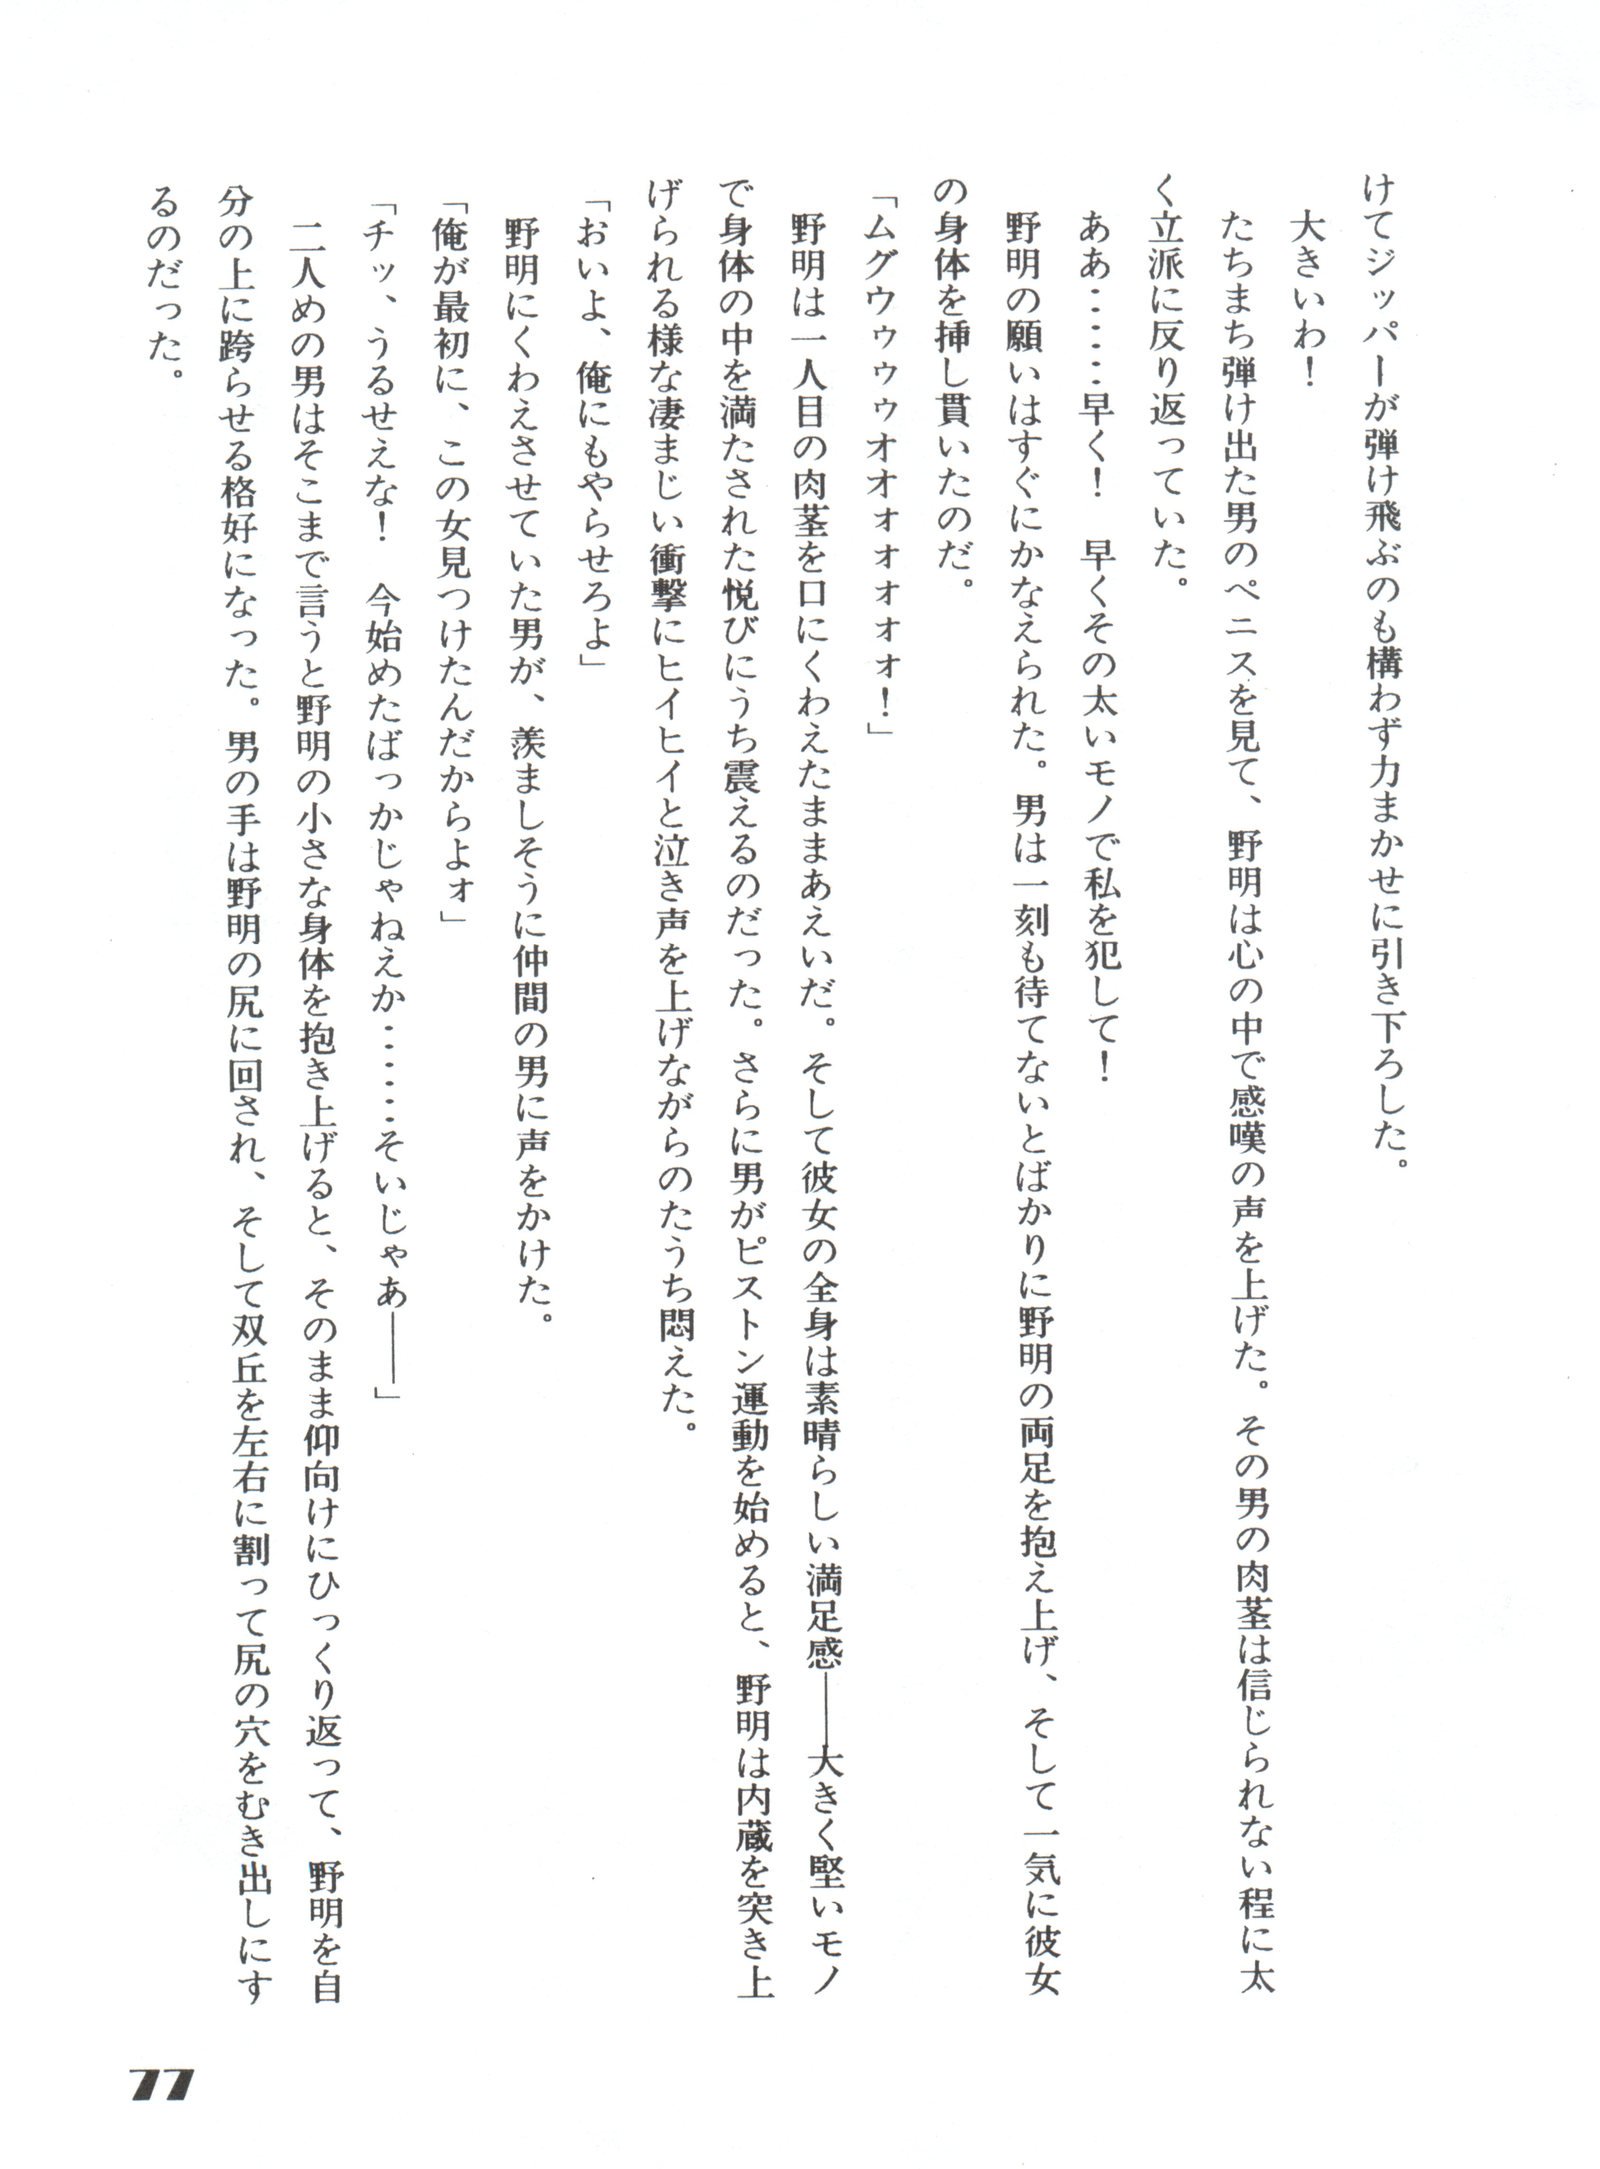 けてジッパーが弾け飛ぶのも構わず力まかせに引き下ろした。
大きいわ！
たちまち弾け出た男のペニスを見て、野明は心の中で感嘆の声を上げた。その男の肉茎は信じられない程に太
く立派に反り返っていた。
ああ……早く！　早くその太いモノで私を犯して！
野明の願いはすぐにかなえられた。男は一刻も待てないとばかりに野明の両足を抱え上げ、そして一気に彼女
の身体を挿し貫いたのだ。
「ムグウゥゥゥオオォォォォォ！」
野明は一人目の肉茎を口にくわえたままあえいだ。そして彼女の全身は素晴らしい満足感――大きく堅いモノ
で身体の中を満たされた悦びにうち震えるのだった。さらに男がピストン運動を始めると、野明は内蔵を突き上
げられる様な凄まじい衝撃にヒイヒイと泣き声を上げながらのたうち悶えた。
「おいよ、俺にもやらせろよ」
野明にくわえさせていた男が、羨ましそうに仲間の男に声をかけた。
「俺が最初に、この女見つけたんだからよォ」
「チッ、うるせえな！　今始めたばっかじゃねえか……そいじゃあ――」
二人めの男はそこまで言うと野明の小さな身体を抱き上げると、そのまま仰向けにひっくり返って、野明を自
分の上に跨らせる格好になった。男の手は野明の尻に回され、そして双丘を左右に割って尻の穴をむき出しにす
るのだった。
77